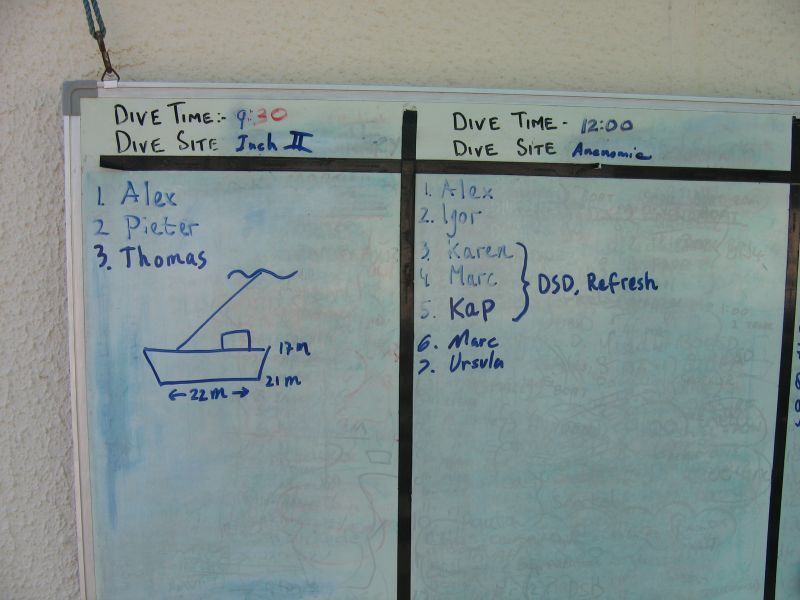 DIVE TIME:- 9:30
DIVE SITE Inch II
1. Alex
2 Pieter
3. Thomas
17m
21m
← 22m →
DIVE TIME - 12:00
DIVE SITE Anenomie
1. Alex
2. Igor
3. Karen
4. Marc
5. Kap
DSD, Refresh
6. Marc
7. Ursula